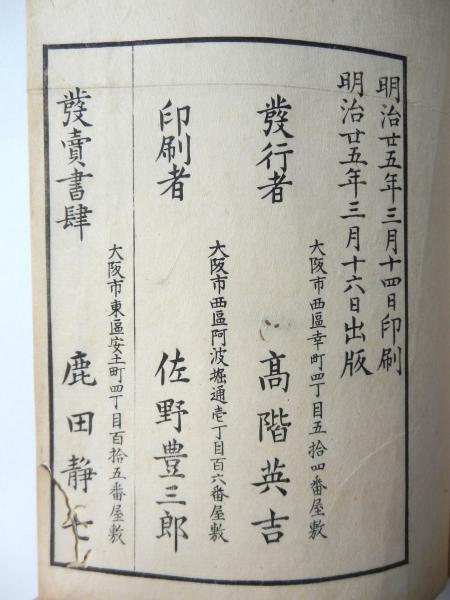 明治廿五年三月十四日印刷
明治廿五年三月十六日出版
大阪市西區幸町四丁目五拾四番屋敷
發行者 高階英吉
大阪市西區阿波堀通壱丁目百六番屋敷
印刷者 佐野豊三郎
大阪市東區安土町四丁目百拾五番屋敷
發賣書肆 鹿田靜七